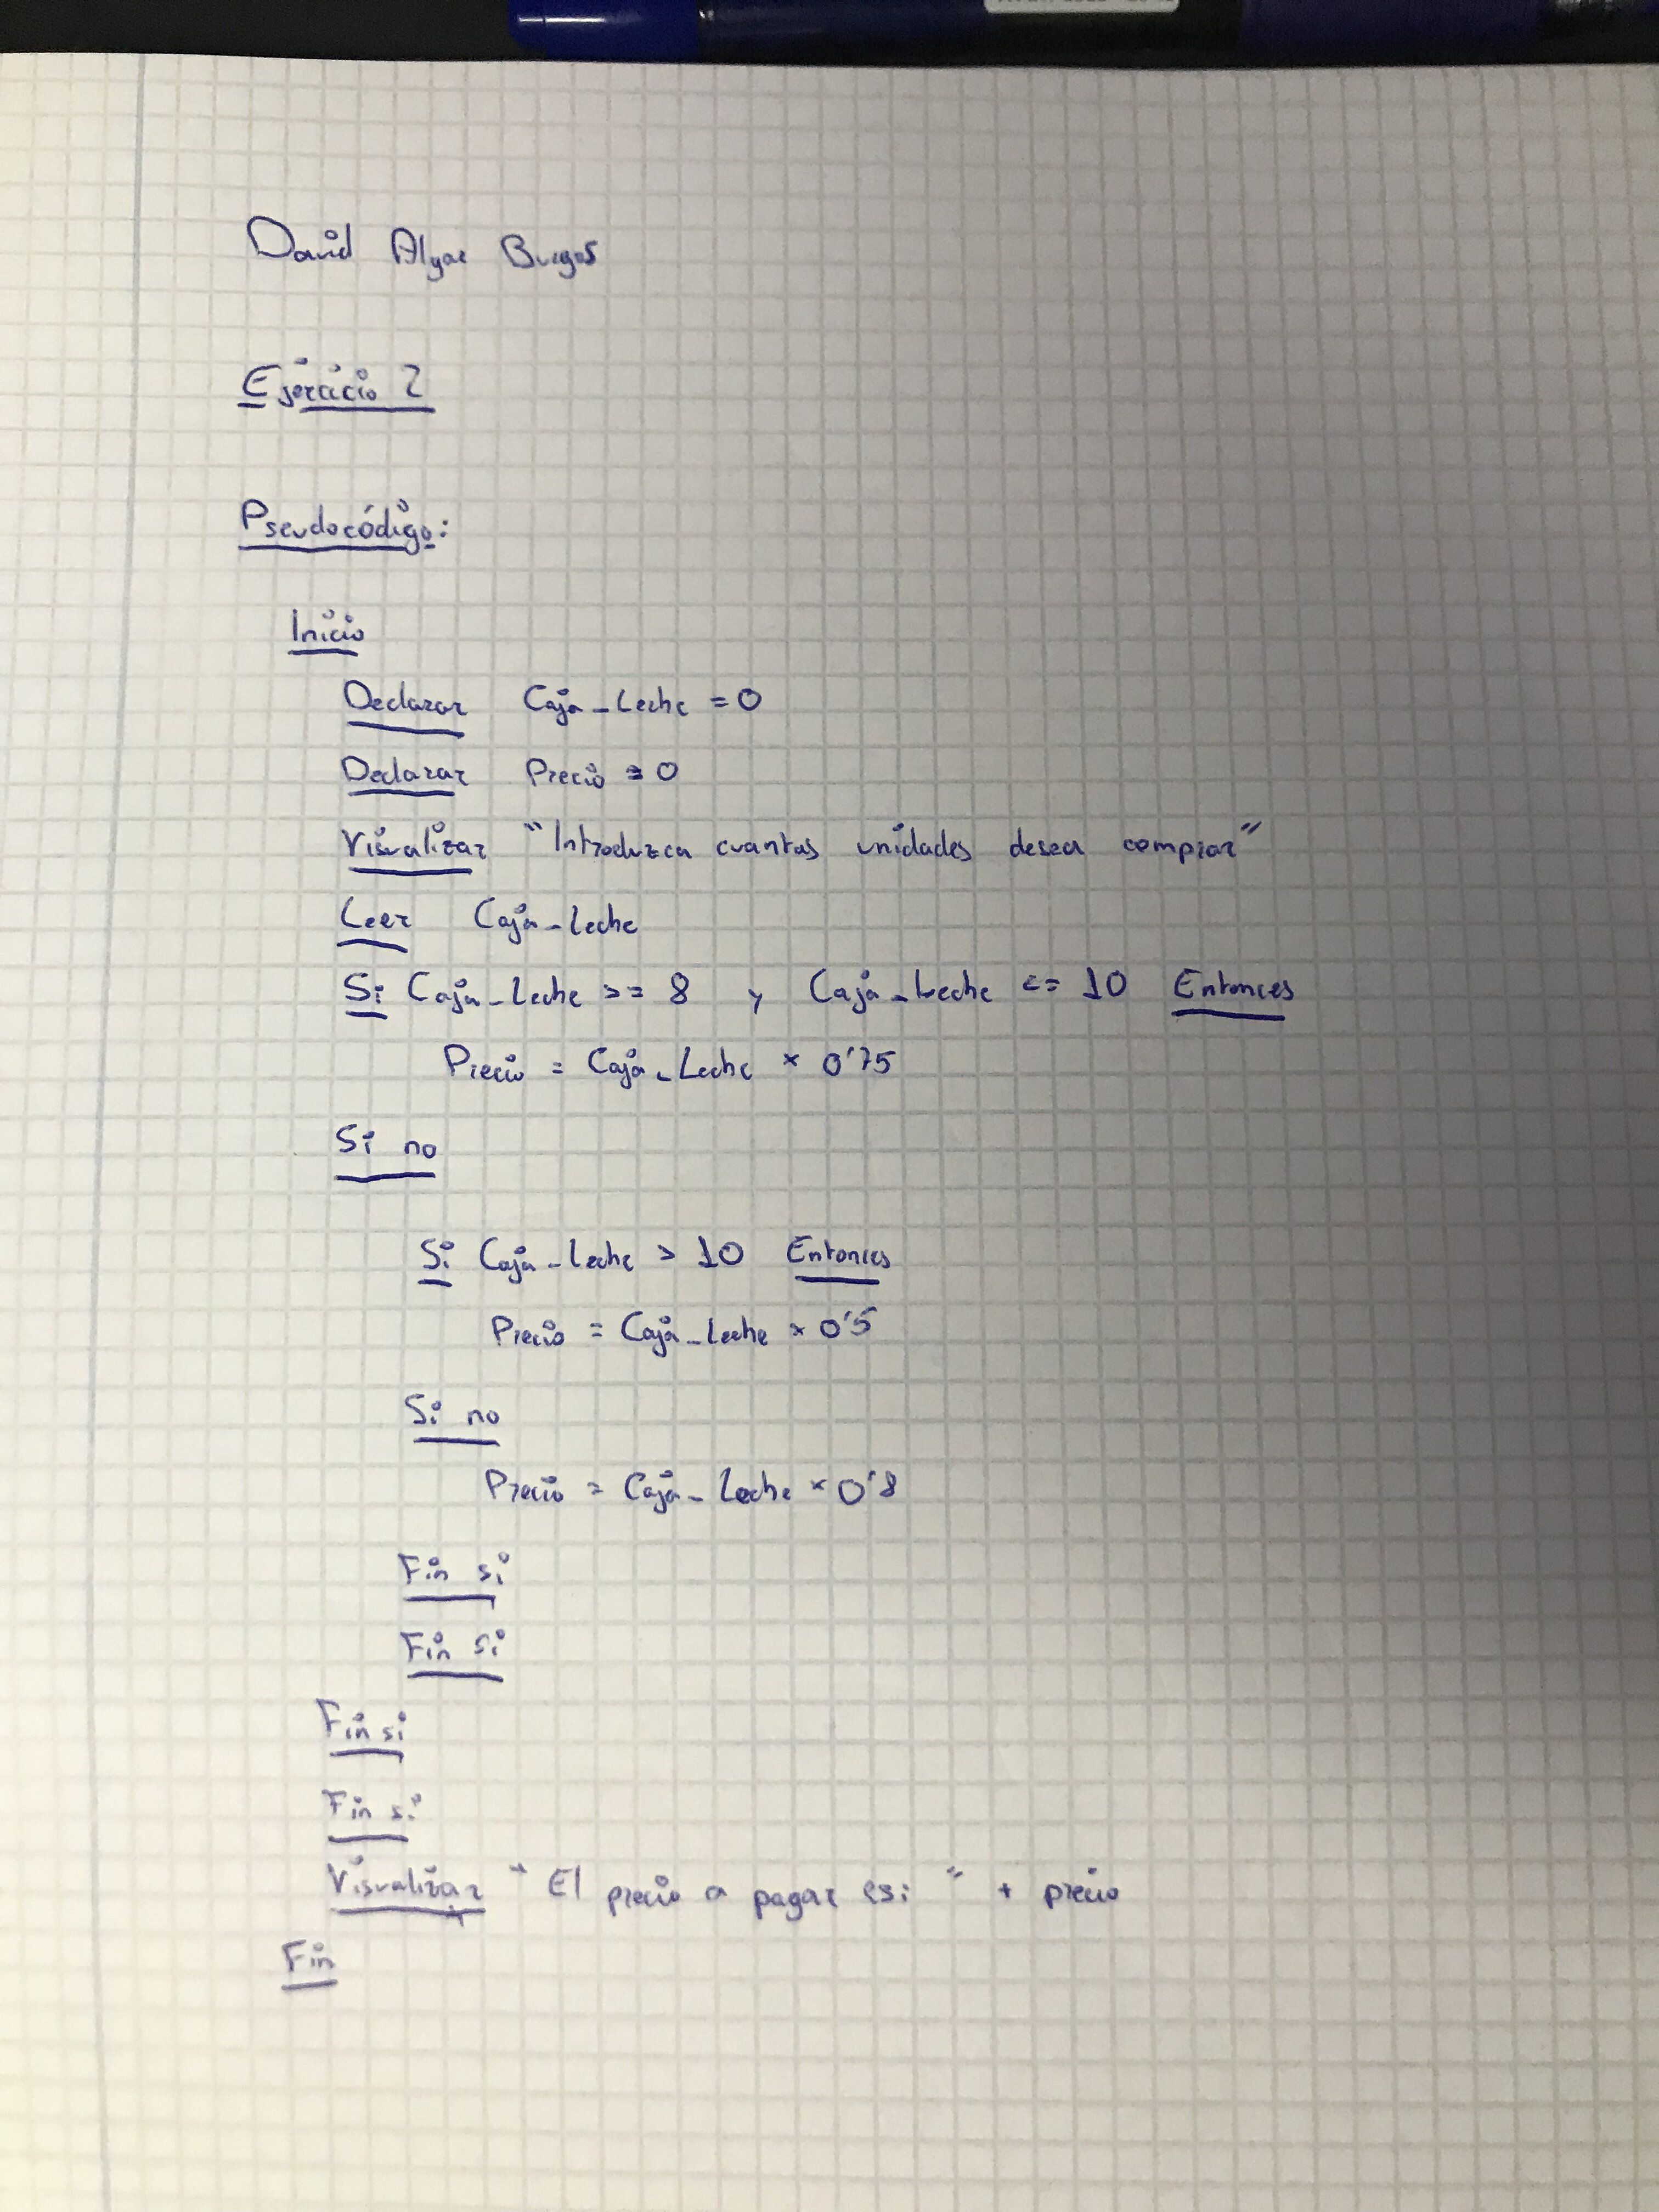 David Algar Burgos
Ejercicio 2
Pseudocódigo:
Inicio
Declarar Caja_Leche = 0
Declarar Precio = 0
Visualizar "Introduzca cuantas unidades desea comprar"
Leer Caja_Leche
Si Caja_Leche >= 8 y Caja_Leche <= 10 Entonces
Precio = Caja_Leche * 0'75
Si no
Si Caja_Leche > 10 Entonces
Precio = Caja_Leche * 0'5
Si no
Precio = Caja_Leche * 0'8
Fin si
Fin si
Fin si
Fin si
Visualizar "El precio a pagar es: " + precio
Fin